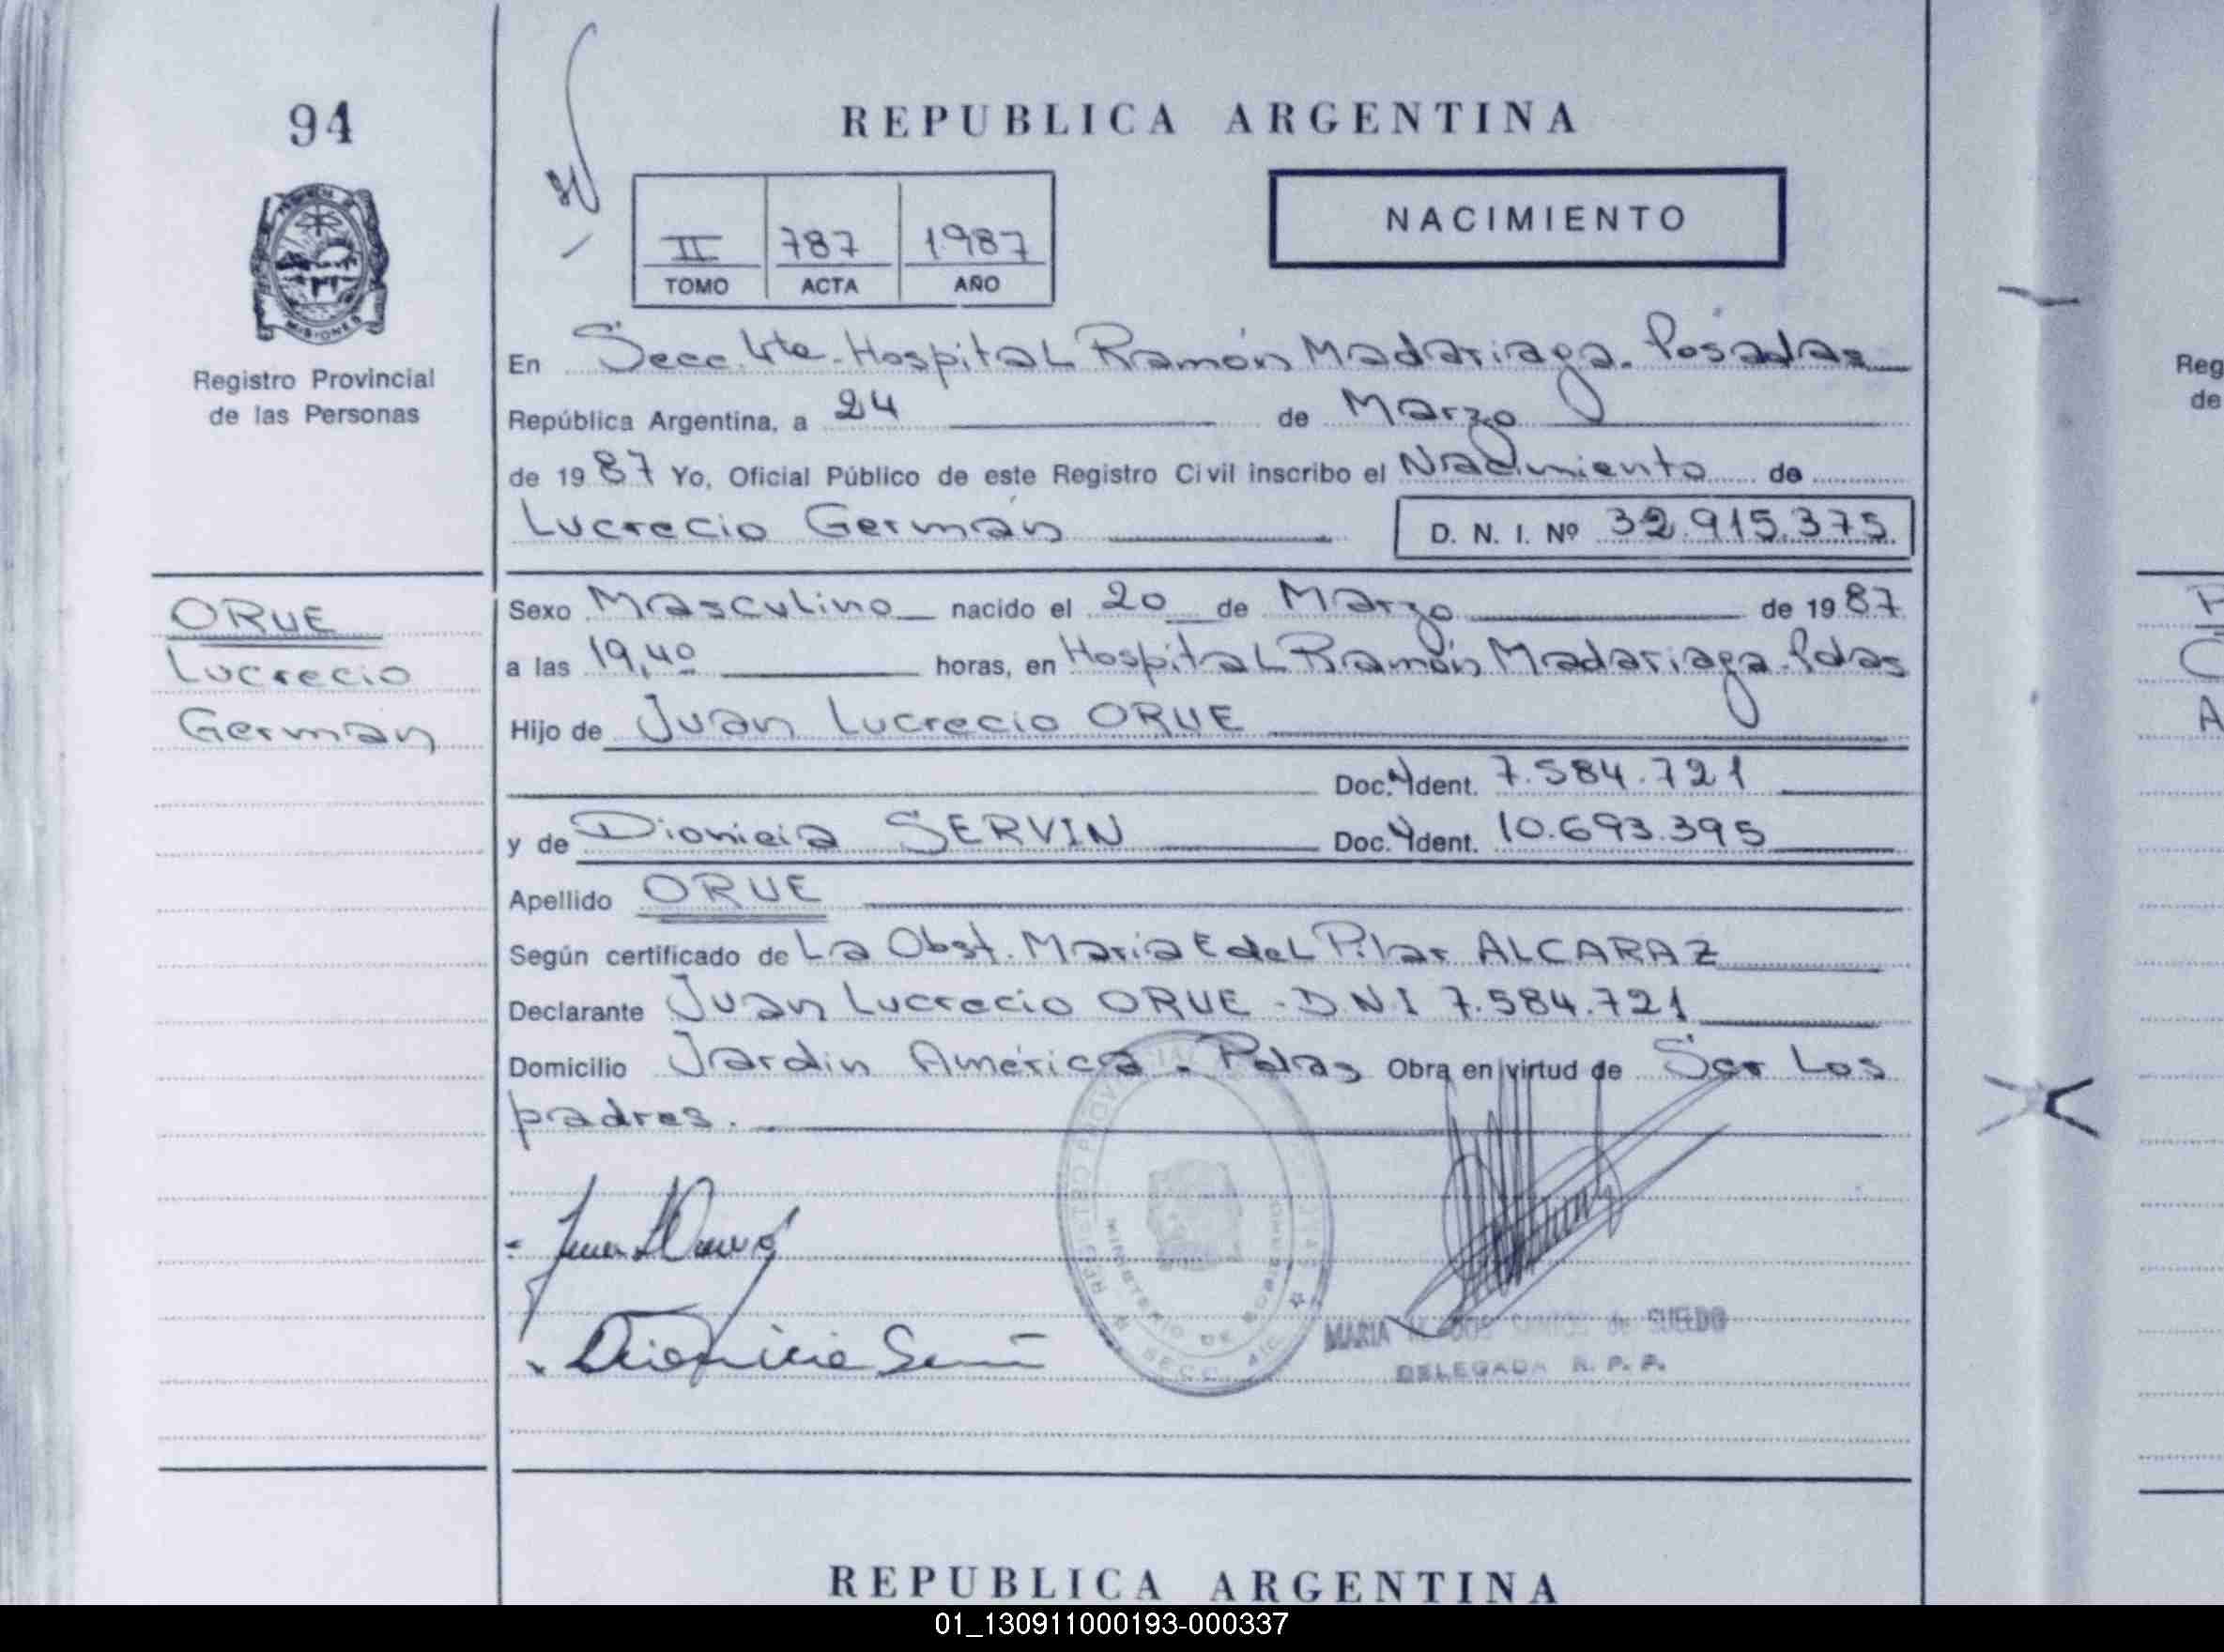 94
REPUBLICA ARGENTINA
II 787 1987
TOMO ACTA AÑO
NACIMIENTO
MISIONES
Registro Provincial
de las Personas
En Secc. 4te. Hospital Ramón Madariaga. Posadas
República Argentina, a 24 de Marzo
de 1987 Yo, Oficial Público de este Registro Civil inscribo el Nacimiento de
Lucrecio Germán D. N. I. Nº 32.915.375.
ORUE
Lucrecio
German
Sexo Masculino nacido el 20 de Marzo de 1987
a las 19,40 horas, en Hospital Ramón Madariaga. Pdas
Hijo de Juan Lucrecio ORUE
Doc. Ident. 7.584.721
y de Dionicia SERVIN Doc. Ident. 10.693.395
Apellido ORUE
Según certificado de La Obst. Maria E del Pilar ALCARAZ
Declarante Juan Lucrecio ORUE - D.N.I 7.584.721
Domicilio Jardin América. Pdas Obra en virtud de Ser Los
padres.
Dionicia
MARIA de SUELDO
DELEGADA R. P. P.
MINISTERIO DE GOBIERNO
REPUBLICA ARGENTINA
Reg
de
01_130911000193-000337